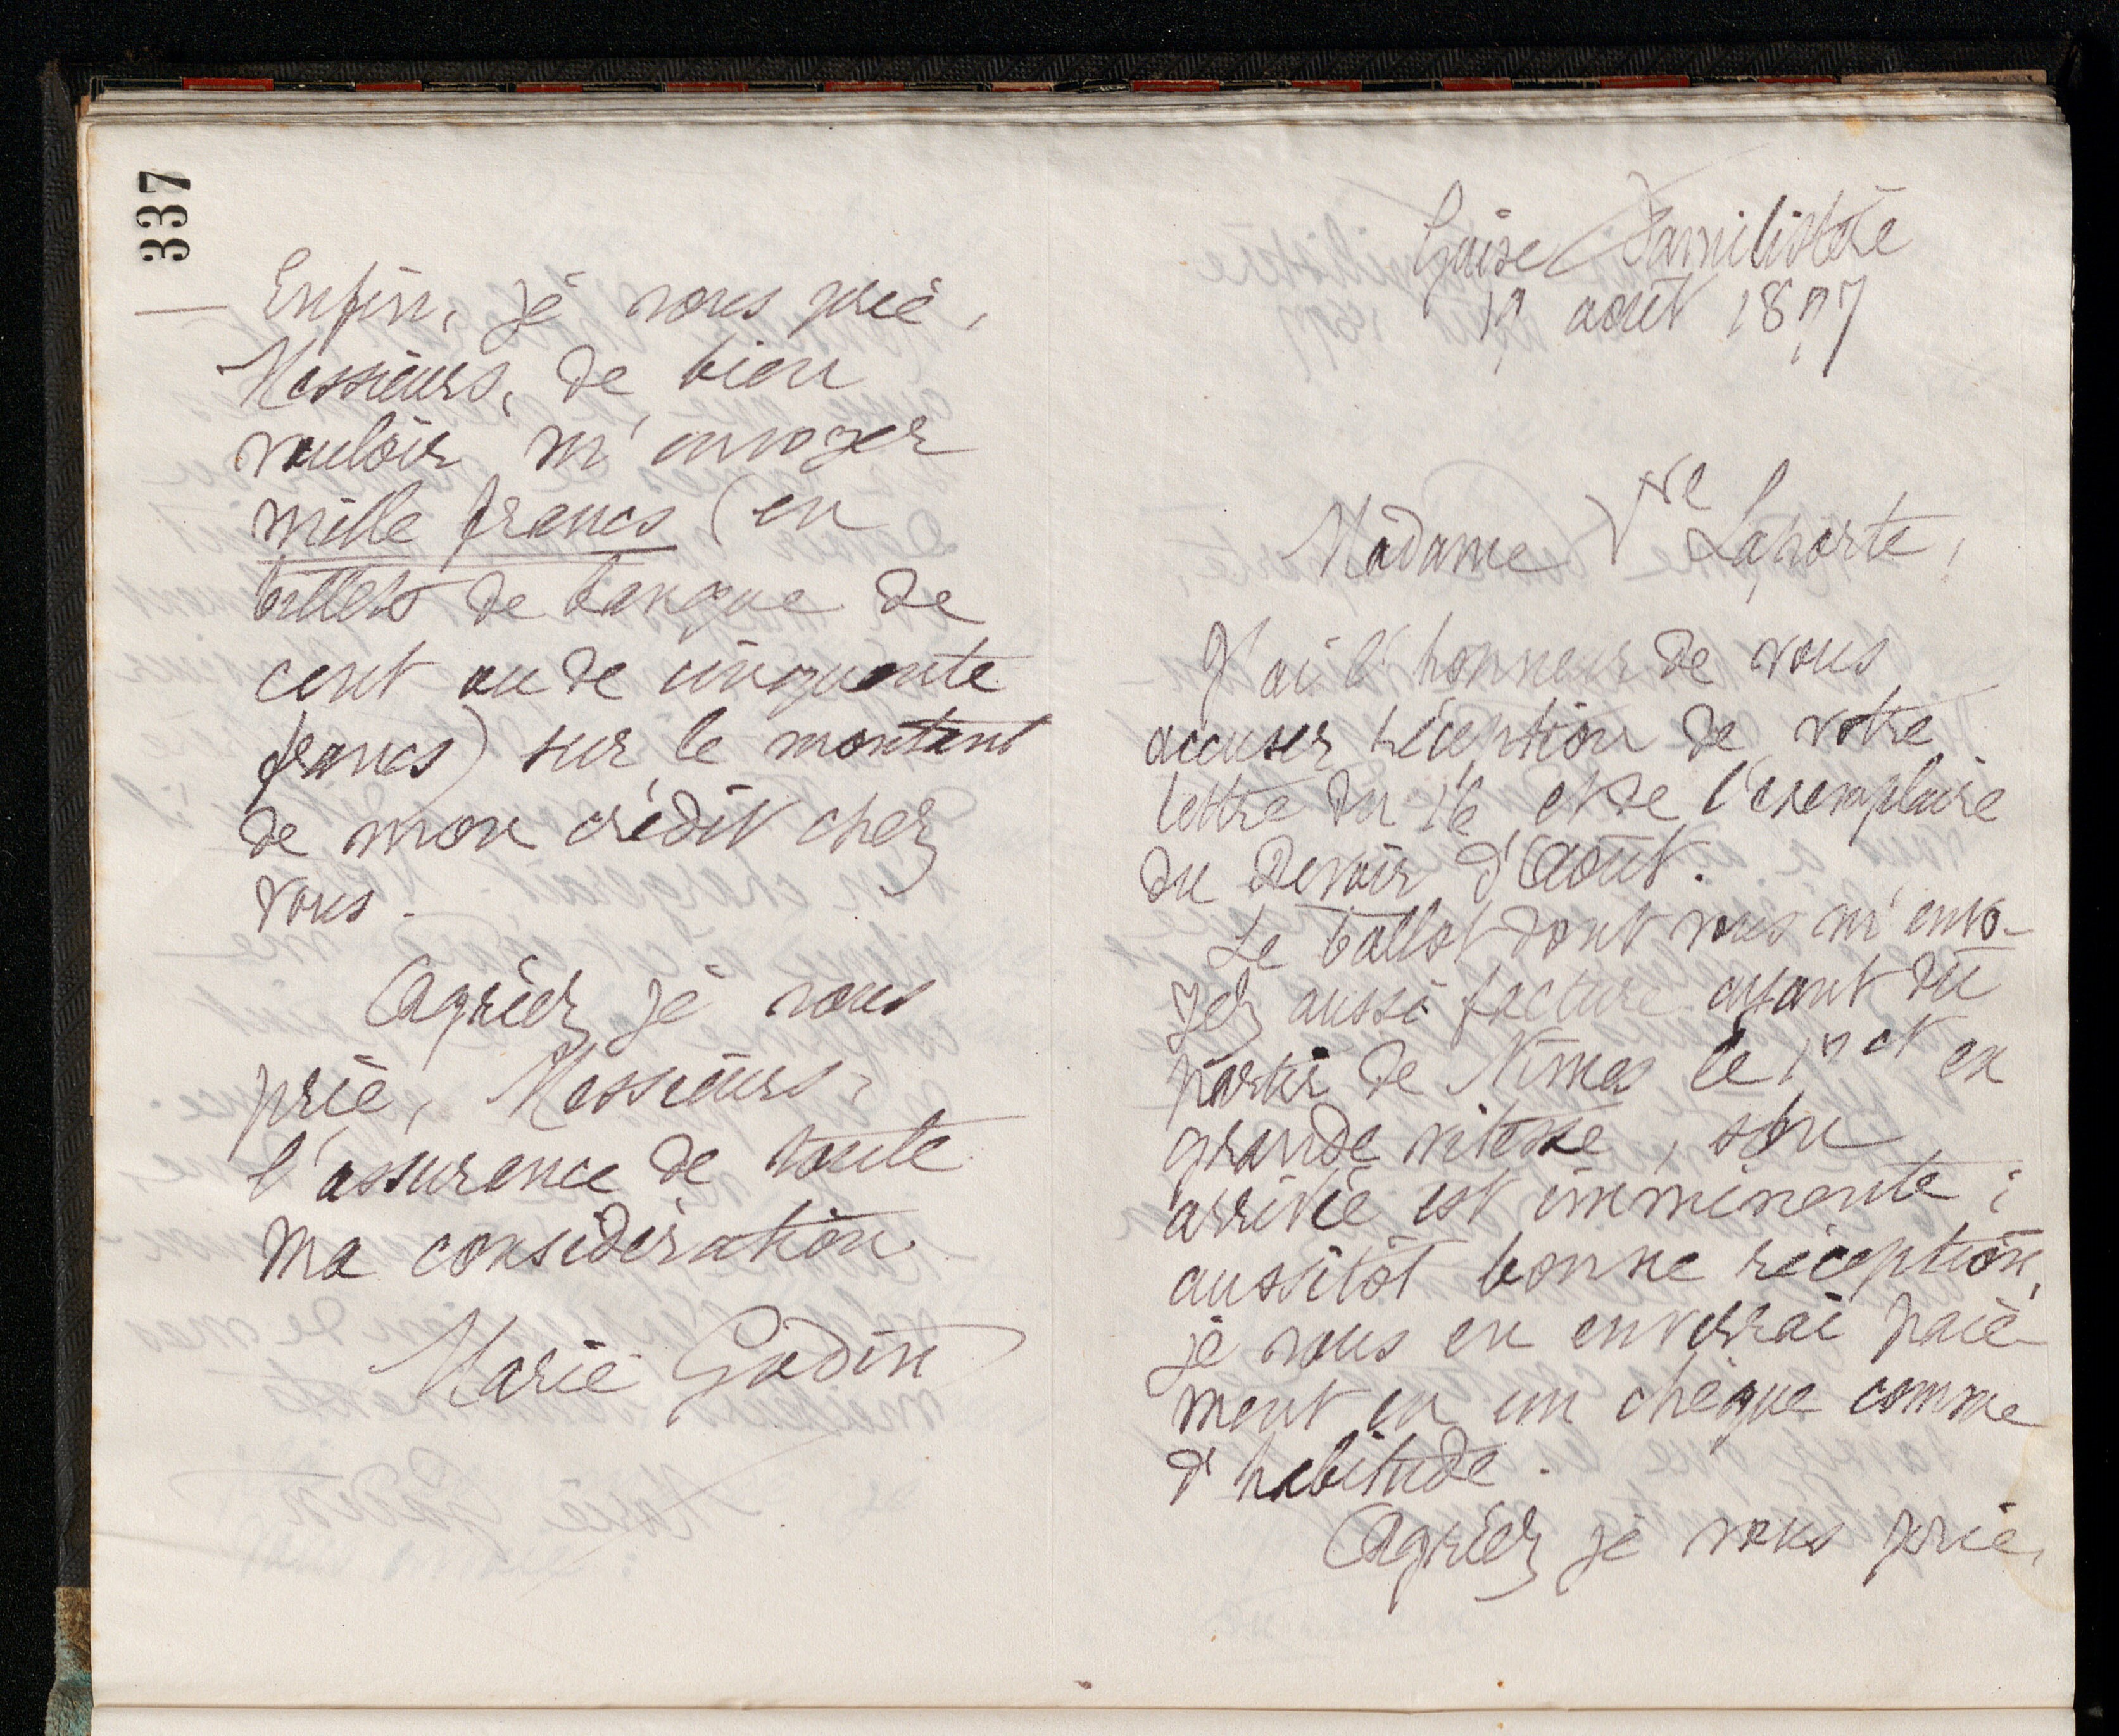 337
— Enfin, je vous prie,
Messieurs, de bien
vouloir m'envoyer
mille francs (en
billets de banque de
cent ou de cinquante
francs) sur le montant
de mon crédit chez
vous.
Agréez je vous
prie, Messieurs,
l'assurance de toute
ma considération
Marie Godin
Guise Familistère
août 1897
Madame Vve Laporte,
J'ai l'honneur de vous
accuser réception de votre
lettre du 16 et de l'exemplaire
du Devoir d'Août.
Le ballot dont vous m'envo-
yez aussi facture ayant dû
partir de Nîmes le en
grande vitesse, son
arrivée est imminente ;
aussitôt bonne réception,
je vous en enverrai paie-
ment en un chèque comme
d'habitude.
Agréez je vous prie,